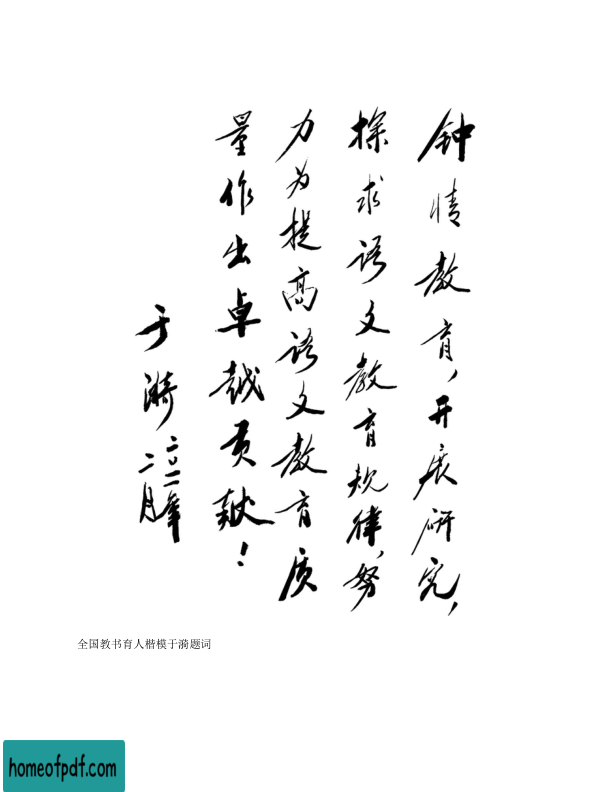 钟情教育，开展研究，
探求语文教育规律，努
力为提高语文教育质
量作出卓越贡献！
于漪
二〇二一年
二月
全国教书育人楷模于漪题词
homeofpdf.com